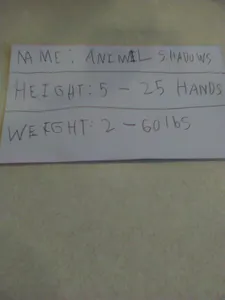 NAME: ANIMIL SHADOWS
HEIGHT: 5 - 25 HANDS
WEIGHT: 2 - 60 lbs